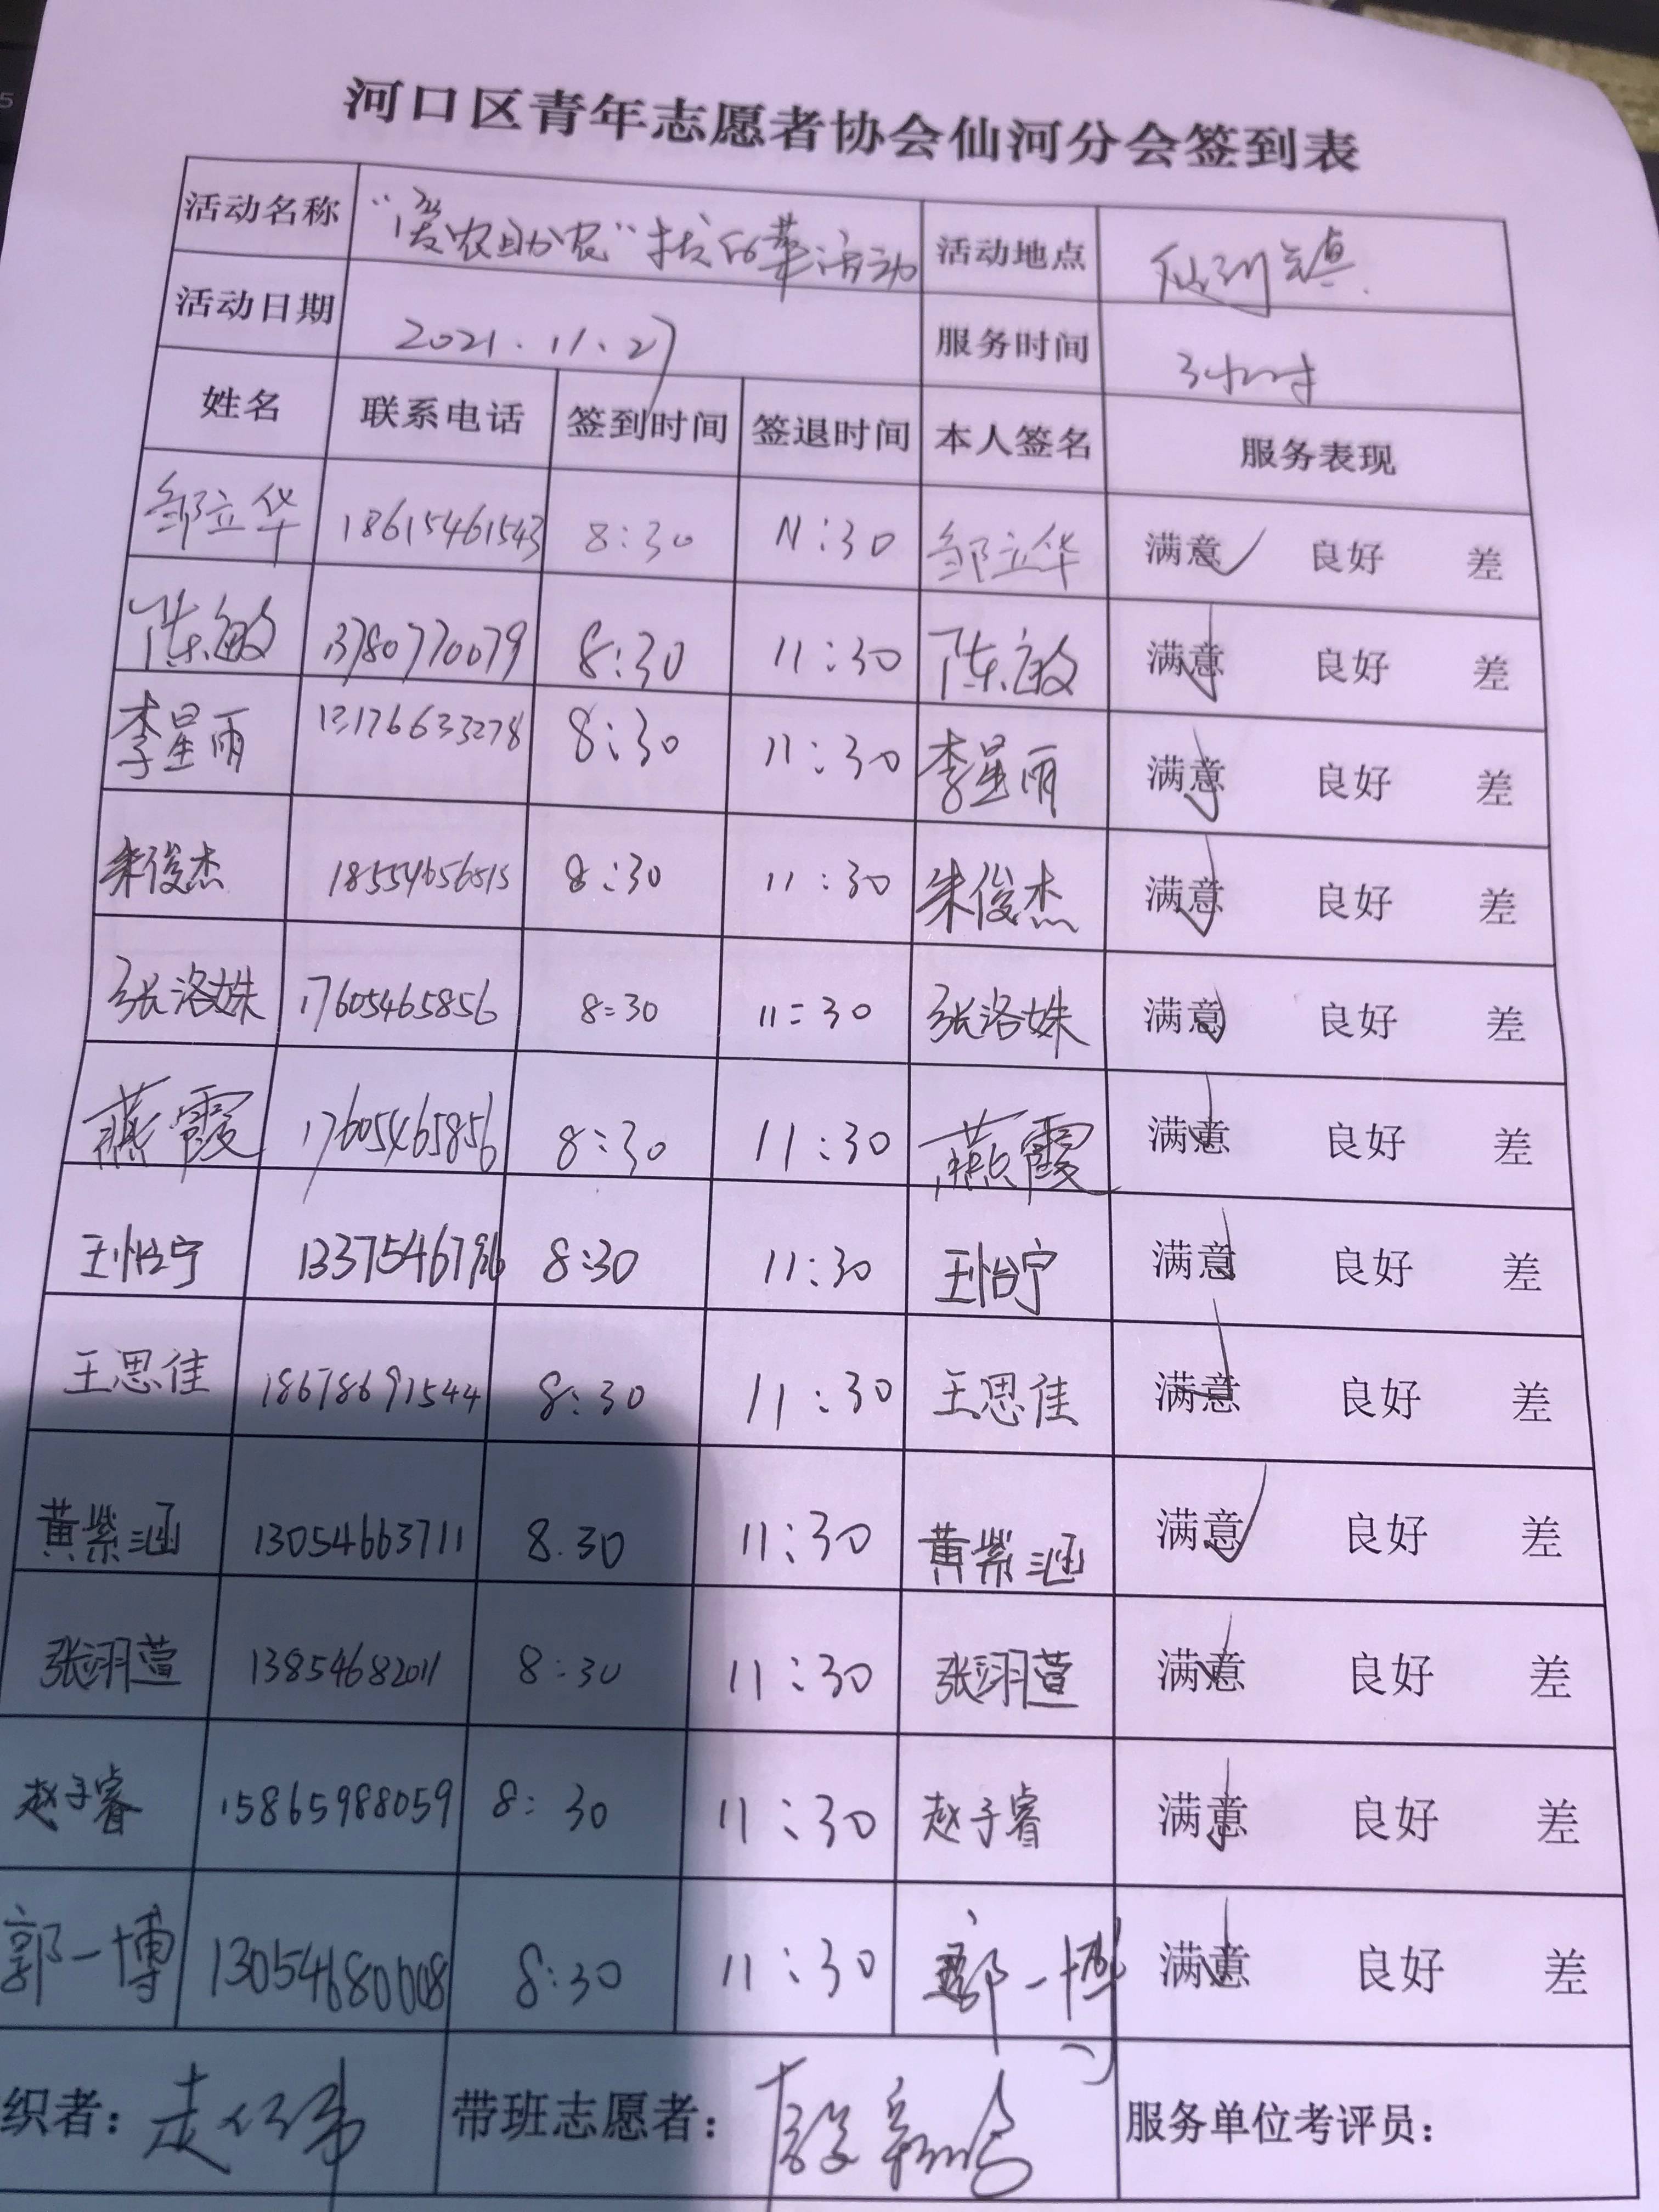 河口区青年志愿者协会仙河分会签到表
活动名称 “爱农助农”拔白菜活动 活动地点 仙河镇
活动日期 2021.11.27 服务时间 3小时
姓名 联系电话 签到时间 签退时间 本人签名 服务表现
邹立华 18615461543 8:30 11:30 邹立华 满意✓ 良好 差
陈敏 13780770079 8:30 11:30 陈敏 满意✓ 良好 差
李星雨 13176633278 8:30 11:30 李星雨 满意✓ 良好 差
朱俊杰 18554656515 8:30 11:30 朱俊杰 满意✓ 良好 差
张洛姝 17605465856 8:30 11:30 张洛姝 满意✓ 良好 差
燕霞 17605465856 8:30 11:30 燕霞 满意✓ 良好 差
王怡宁 8:30 11:30 王怡宁 满意✓ 良好 差
王思佳 18678691544 8:30 11:30 王思佳 满意✓ 良好 差
黄紫涵 13054663711 8.30 11:30 黄紫涵 满意✓ 良好 差
张翊萱 13854682011 8:30 11:30 张翊萱 满意✓ 良好 差
赵子睿 15865988059 8:30 11:30 赵子睿 满意✓ 良好 差
郭一博 13054680008 8:30 11:30 郭一博 满意✓ 良好 差
织者: 带班志愿者: 服务单位考评员: